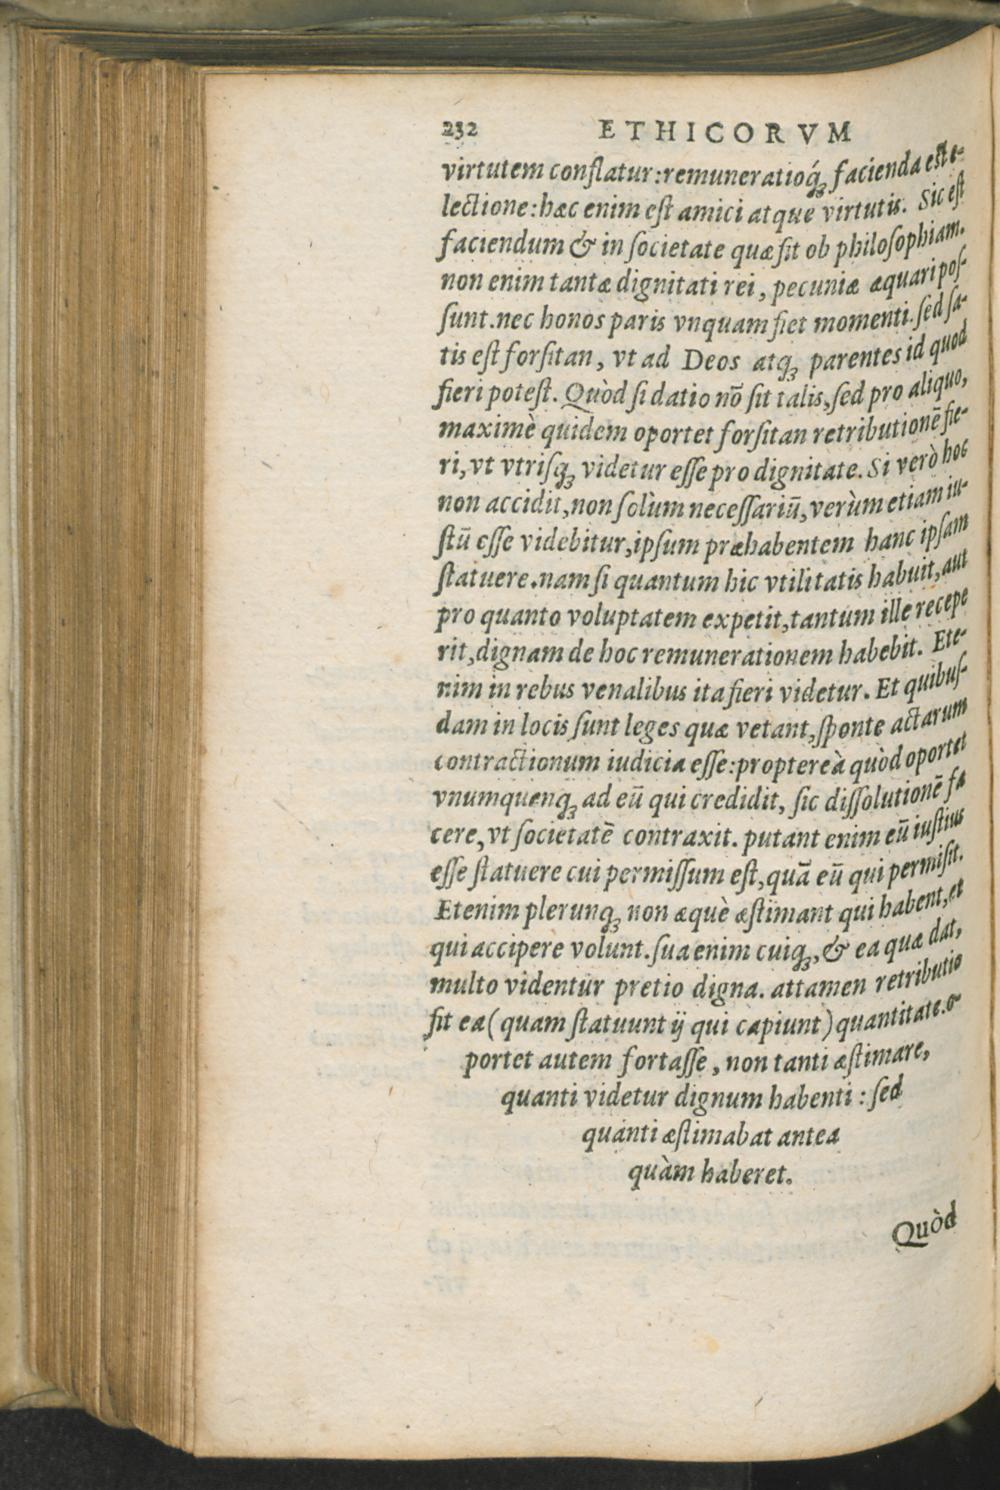 232 ETHICORVM
virtutem conflatur:remuneratioq́ꝫ facienda est e-
lectione:hæc enim est amici atque virtutis. Sic est
faciendum & in societate quæ sit ob philosophiam.
non enim tantæ dignitati rei, pecuniæ æquari pos-
sunt.nec honos paris vnquam fiet momenti.sed sa-
tis est forsitan, vt ad Deos atqꝫ parentes id quod
fieri potest. Quòd si datio nō sit talis,sed pro aliquo,
maximè quidem oportet forsitan retributionē fie-
ri,vt vtrisqꝫ videtur esse pro dignitate. Si verò hoc
non accidit,non solùm necessariū,verùm etiam iu-
stū esse videbitur,ipsum præhabentem hanc ipsam
statuere.nam si quantum hic vtilitatis habuit,aut
pro quanto voluptatem expetit,tantum ille recepe
rit,dignam de hoc remunerationem habebit. Ete-
nim in rebus venalibus ita fieri videtur. Et quibus-
dam in locis sunt leges quæ vetant,sponte actarum
contractionum iudicia esse:proptereà quòd oportet
vnumquenqꝫ ad eū qui credidit, sic dissolutionē fa
cere,vt societatē contraxit. putant enim eū iustius
esse statuere cui permissum est,quā eū qui permisit.
Etenim plerunqꝫ non æquè æstimant qui habent,et
qui accipere volunt.sua enim cuiqꝫ,& ea quæ dat,
multo videntur pretio digna. attamen retributio
fit ea(quam statuunt ij qui capiunt)quantitate.o-
portet autem fortasse, non tanti æstimare,
quanti videtur dignum habenti : sed
quanti æstimabat antea
quàm haberet.
Quòd